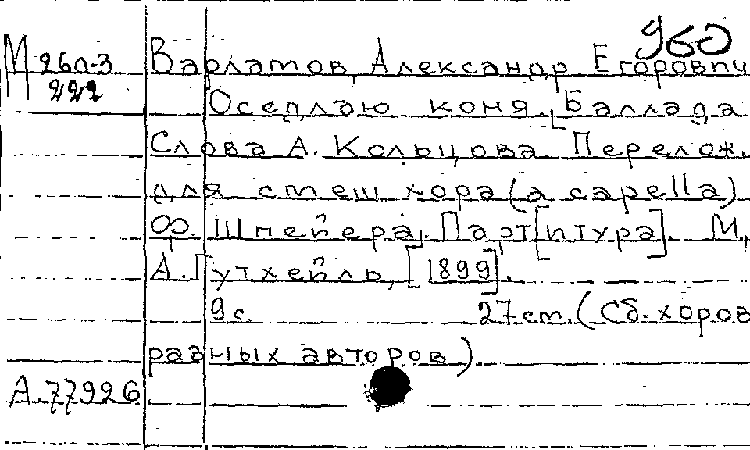 960
М 26п-3 Варламов, Александр Егорович
222 Оседлаю коня. Баллада.
Слова А. Кольцова. Перелож.
для смеш. хора (a capella)
Ф. Шпейера. Парт[итура]. М,
А. Гутхейль, [1899].
9 с. 27 см. (Сб. хоров
разных авторов).
А.77926